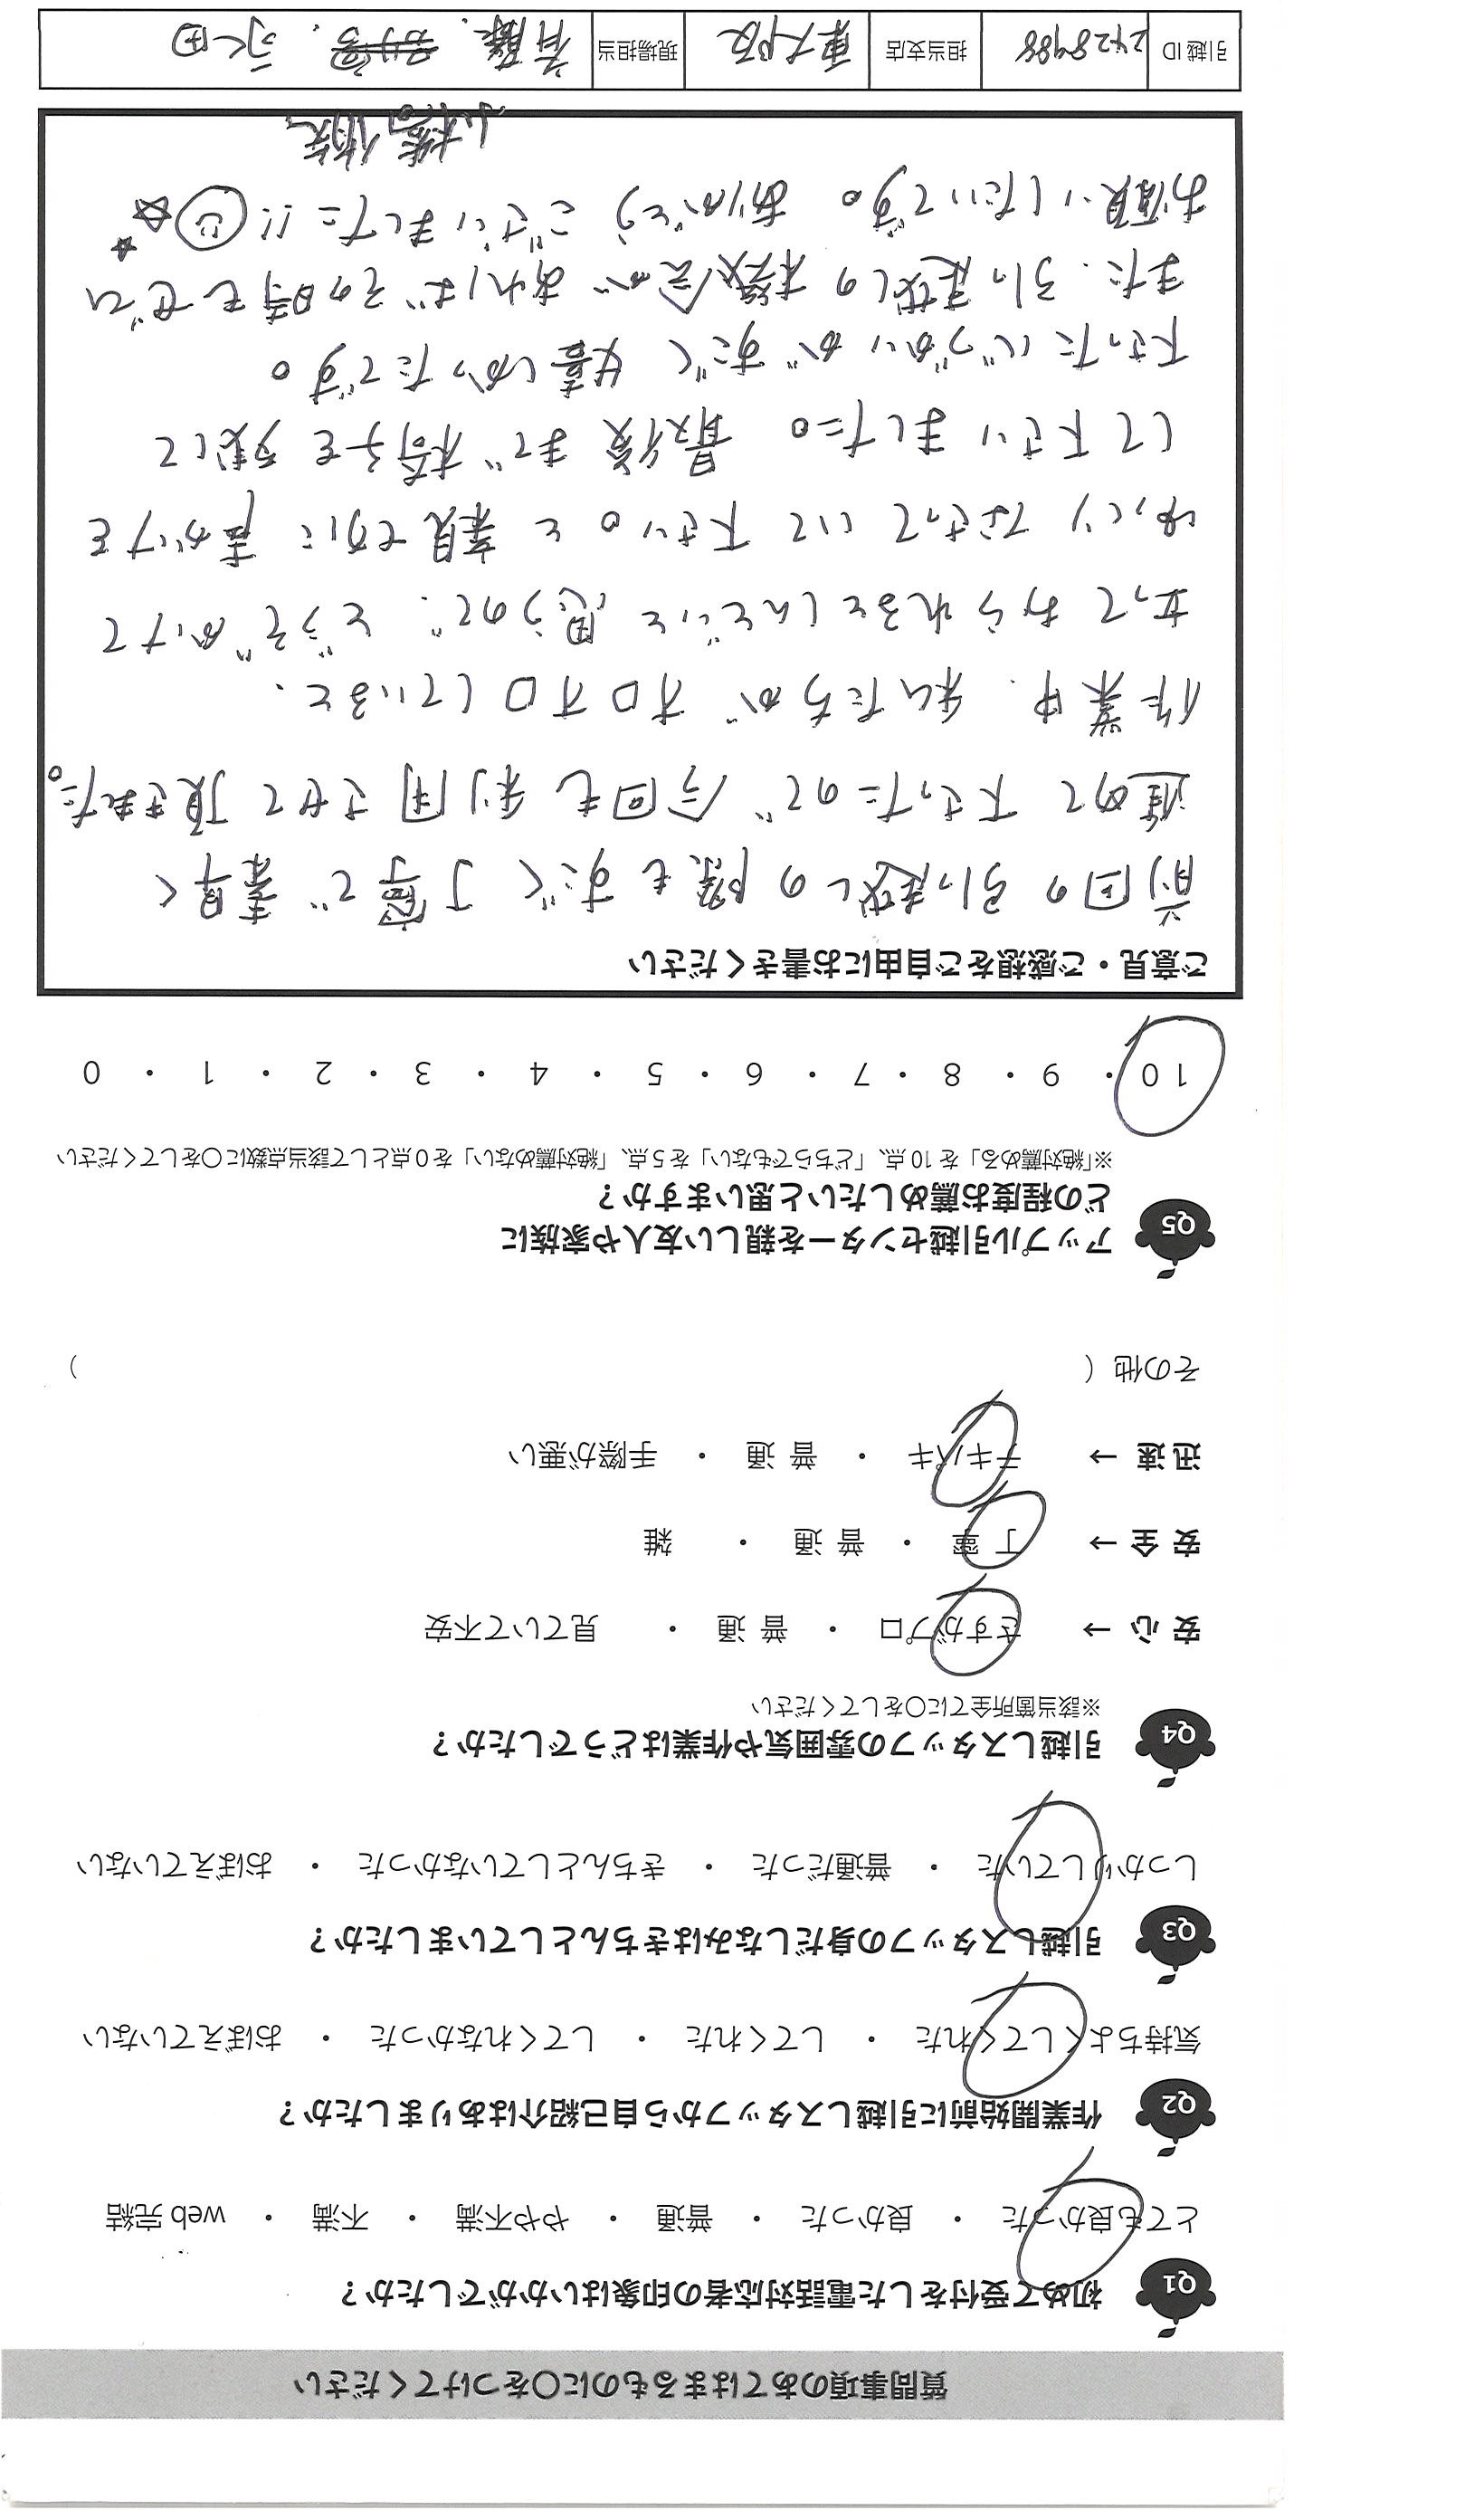 質問事項のあてはまるものに○をつけてください
Q1 初めて受付をした電話対応者の印象はいかがでしたか？
とても良かった ・ 良かった ・ 普通 ・ やや不満 ・ 不満 ・ web 完結
Q2 作業開始前に引越しスタッフから自己紹介はありましたか？
気持ちよくしてくれた ・ してくれた ・ してくれなかった ・ おぼえていない
Q3 引越しスタッフの身だしなみはきちんとしていましたか？
しっかりしていた ・ 普通だった ・ きちんとしていなかった ・ おぼえていない
Q4 引越しスタッフの雰囲気や作業はどうでしたか？
※該当箇所全てに○をしてください
安 心 → さすがプロ ・ 普 通 ・ 見ていて不安
安 全 → 丁 寧 ・ 普 通 ・ 雑
迅 速 → テキパキ ・ 普 通 ・ 手際が悪い
その他（ ）
Q5 アップル引越センターを親しい友人や家族に
どの程度お薦めしたいと思いますか？
※「絶対薦める」を 10 点、「どちらでもない」を 5 点、「絶対薦めない」を 0 点として該当点数に○をしてください
10 ・ 9 ・ 8 ・ 7 ・ 6 ・ 5 ・ 4 ・ 3 ・ 2 ・ 1 ・ 0
ご意見・ご感想をご自由にお書きください
前回の引っ越しの際もすごく丁寧で素早く
進めて下さったので今回も利用させて頂きました。
作業中、私たちがオロオロしていると、
立っておられるとしんどいと思うので、どうぞかけて
ゆっくりなさっていて下さい。と素敵に声かけを
して下さいました。最後まで椅子を残して
下さった心づかいがすごく嬉しかったです。
また、引っ越しの機会があればその時もぜひ
お願いしたいです。ありがとうございました!!
引越 ID 2428988 担当支店 東大阪 現場担当 斉藤、永田